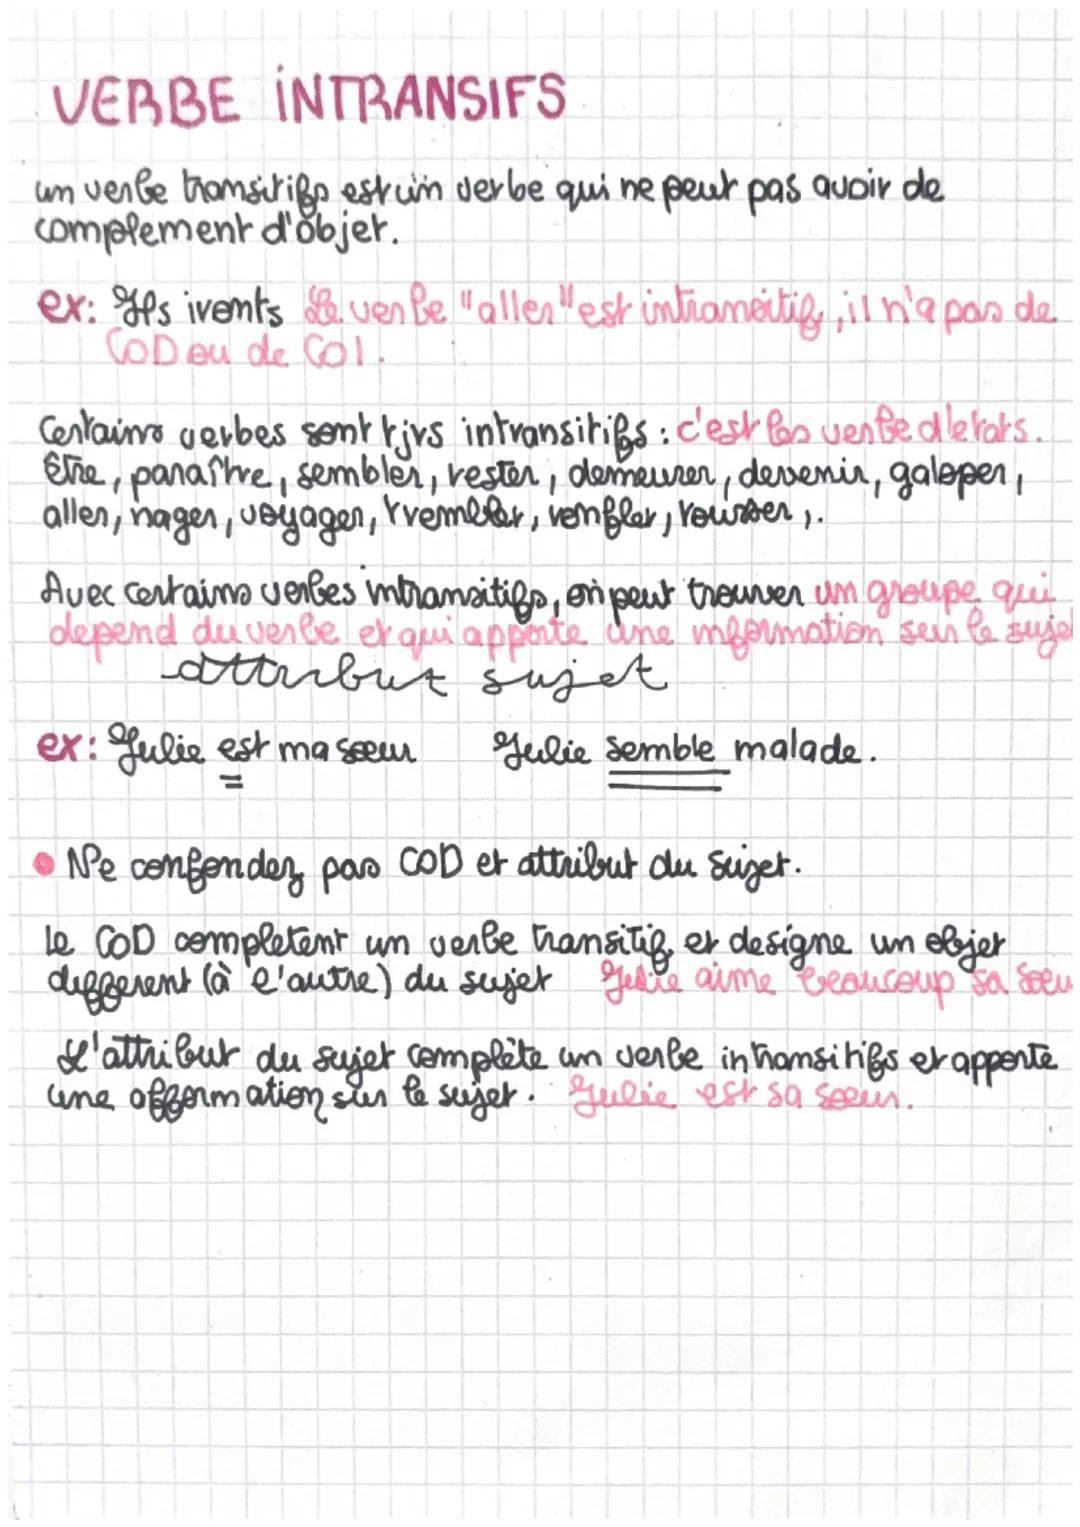 VERBE INTRANSIFS
un verbe transitifs est un verbe qui ne peut pas avoir de
complement d'objet.
ex: Ils ivonts Le verbe "aller" est intransitif, il n'a pas de
COD ou de COI.
Certains verbes sont tjrs intransitifs : c'est les verbe d'etats.
être, paraître, sembler, rester, demeurer, devenir, galoper,
aller, nager, voyager, ronfler,
Avec certains verbes intransitifs, on peut trouver un groupe qui
depend du verbe et qui apporte une information sur le sujet
attribut sujet
ex: Julie est ma soeur Julie semble malade.
Ne confondez pas COD et attribut du sujet.
le COD completent un verbe transitif et designe un objet
different (à l'autre) du sujet Julie aime beaucoup sa soeu
L'attribut du sujet complète un verbe intransitifs et apporte
une sur le sujet. Julie est sa soeur.